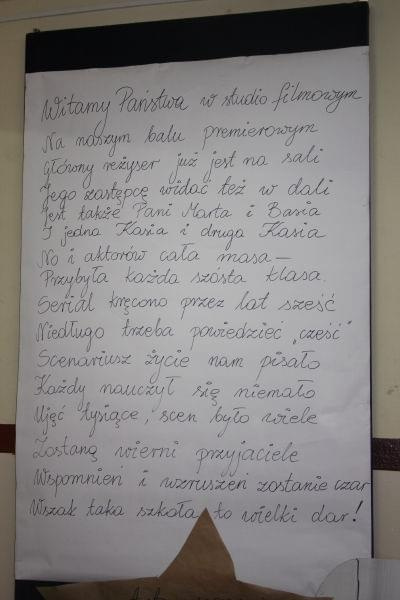 Witamy Państwa w studio filmowym
Na naszym balu premierowym
główny reżyser już jest na sali
Jego zastępcę widać też w dali
Jest także Pani Marta i Basia
I jedna Kasia i druga Kasia
No i aktorów cała masa —
Przybyła każda szósta klasa.
Serial kręcono przez lat sześć
Niedługo trzeba powiedzieć „cześć"
Scenariusz życie nam pisało
Każdy nauczył się niemało
Ujęć tysiące, scen było wiele
Zostaną wierni przyjaciele
Wspomnień i wzruszeń zostanie czar
Wszak taka szkoła to wielki dar!